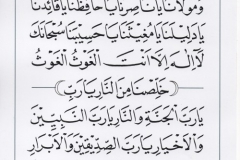 وَمَوْلَانَا يَا نَاصِرَنَا يَا حَافِظَنَا يَا قَائِدَنَا
يَا دَلِيلَنَا يَا مُغِيثَنَا يَا حَسِيبَنَا سُبْحَانَكَ
لَا إِلَهَ إِلَّا أَنْتَ الْغَوْثُ الْغَوْثُ
خَلِّصْنَا مِنَ النَّارِ يَا رَبِّ
يَا رَبَّ الْجَنَّةِ وَالنَّارِ يَا رَبَّ النَّبِيِّينَ
وَالْأَخْيَارِ يَا رَبَّ الصِّدِّيقِينَ وَالْأَبْرَارِ